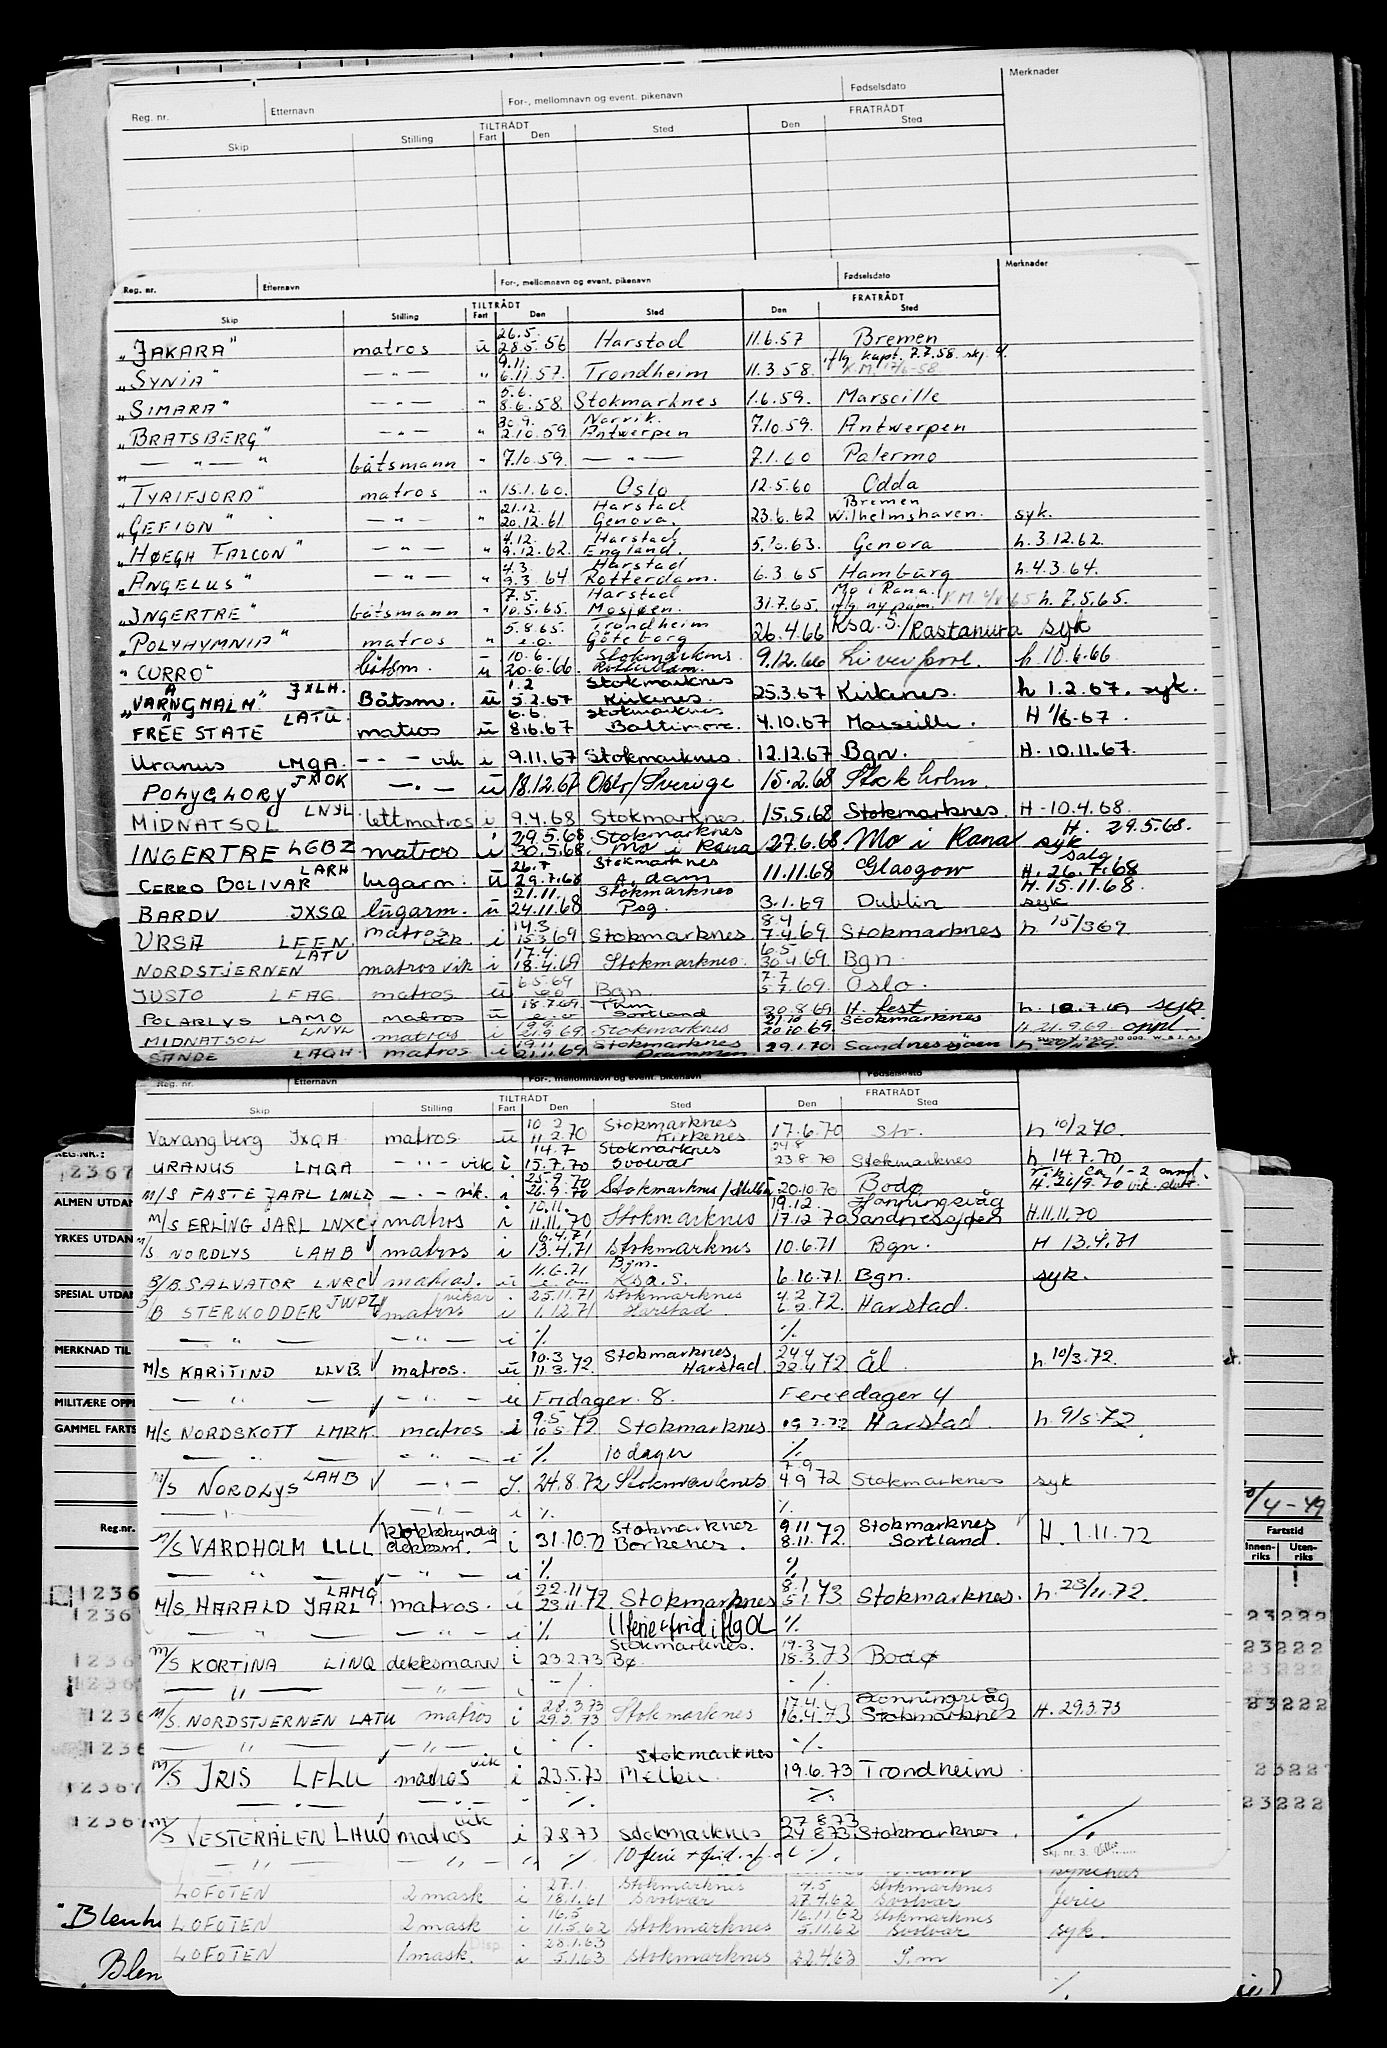 Reg. nr. Etternavn For-, mellomnavn og event. pikenavn Fødselsdato Merknader
TILTRÅDT FRATRÅDT
Skip Stilling Fart Den Sted Den Sted
Reg. nr. Etternavn For-, mellomnavn og event. pikenavn Fødselsdato Merknader
TILTRÅDT FRATRÅDT
Skip Stilling Fart Den Sted Den Sted
"JAKARA" matros u 26.5. 28.5.56 Harstad 11.6.57 Bremen
"SYNIA" — " — " 9.11. 6.11.57. Trondheim 11.3.58. iflg. kapt. 7.7.58. skj. 4.
"SIMARA" — " — " 5.6. 8.6.58. Stokmarknes 1.6.59. Marseille
"BRATSBERG" — " — " 30.9. 2.10.59 Narvik Antwerpen 7.10.59. Antwerpen
— " — " båtsmann " 7.10.59. — " — 7.1.60 Palermo
"TYRIFJORD" matros " 15.1.60. Oslo 12.5.60 Odda
"GEFION" — " — " 21.12. 20.12.61 Harstad Genova. 23.6.62 Bremen Wilhelmshaven. syk.
"HØEGH FALCON" — " — " 4.12. 9.12.62. Harstad England. 5.10.63. Genova h. 3.12.62.
"ANGELUS" — " — " 4.3. 9.3.64 Harstad Rotterdam. 6.3.65 Hamburg h. 4.3.64.
"INGERTRE" båtsmann " 7.5. 10.5.65. Harstad Mosjøen. 31.7.65. Mo i Rana. iflg ny pam. h. 7.5.65.
"POLYHYMNIA" matros " 5.8.65. e.o. Trondheim Göteborg 26.4.66 Ksa.S./Rastanura syk
"CURRO" båtsm. u 10.6. 20.6.66 Stokmarknes Rotterdam. 9.12.66 Liverpool. h 10.6.66
"VARANGMALM" JXLH. Båtsm. u 1.2 5.2.67 Stokmarknes Kirkenes. 25.3.67 Kirkenes. h 1.2.67. syk.
FREE STATE LATU matros u 6.6. 8.6.67 Stokmarknes Baltimore. 4.10.67 Marseille. H 1/6-67.
Uranus LMQA. — - — vik i 9.11.67 Stokmarknes. 12.12.67 Bgn. H. 10.11.67.
POLYGLORY JXOK — . — u 18.12.67 Oslo/Sverige 15.2.68 Stockholm.
MIDNATSOL LNYL lettmatros i 9.4.68 Stokmarknes. 15.5.68 Stokmarknes. H - 10.4.68.
INGERTRE LGBZ matros i 29.5.68 30.5.68. Stokmarknes Mo i Rana 27.6.68. Mo i Rana H. 29.5.68. syk
CERRO BOLIVAR LARH lugarm. u 26.7 29.7.68 Stokmarknes A.dam 11.11.68 Glasgow salg H. 26.7.68
BARDU JXSQ lugarm. u 21.11. 24.11.68 Stokmarknes Psg. 3.1.69 Dublin H. 15.11.68. syk
URSA LEEN. matros vik. i 14.3 15.3.69 Stokmarknes 8.4 7.4.69 Stokmarknes h 15/3 69
NORDSTJERNEN LATU matros vik i 17.4. 18.4.69 Stokmarknes. 6.5 30.4.69. Bgn.
JUSTO LFAG matros u 6.5.69 e.o Bgn. 7.7 5.7.69. Oslo.
POLARLYS LAMO matros u 18.7.69. e.o Tham Sortland 20.8.69 H. fest syk
MIDNATSOL LNYL matros i 19.9. 21.9.69 Stokmarknes 21.10 20.10.69. Stokmarknes H. 21.9.69 oppl.
SANDE LAQH matros i 19.11 21.11.69 Stokmarknes Drammen 29.1.70 Sandnessjøen
Reg. nr. Etternavn For-, mellomnavn og event. pikenavn Fødselsdato
TILTRÅDT FRATRÅDT
Skip Stilling Fart Den Sted Den Sted
Varangberg JXQA matros u 10 2 11 2.70 Stokmarknes Kirkenes 17.6.70 Str. h 10/2 70.
URANUS LMQA — " — vik i 14.7 15.7.70 Stokmarknes Svolvær 24 8 23 8 70 Stokmarknes h 14.7.70
M/S FASTE JARL LMLD — . — vik. i 25.9.70 26.9.70 Stokmarknes/Melbu 20.10.70 Bodø
M/S ERLING JARL LNXC matros i 10.11. 11.11.70 Stokmarknes 19.12. 17.12.70 Honningsvåg Sandnessjøen H.11.11.70
M/S NORDLYS LAHB matros i 6.4.71 13.4.71 Stokmarknes 10.6.71 Bgn. H 13.4.71
B/B. SALVATOR LNRC matros. u 11.6.71 e.o. Bgn. Ksa.S. 6.10.71. Bgn. syk.
S/B STERKODDER JWPZ vikar matros i 25.11.71 1.12.71 Stokmarknes Harstad 4.2 6.2.72. Harstad.
— " — — " — i % %
M/S KARITIND LLVB matros. u 10.3 11.3.72. Stokmarknes Harstad 24 4 22.4 72 Ål. h 10/3.72.
— " — — " — u Fridager. 8. Feriedager 4
M/S NORDSKOTT LMRK matros i 9.5 10.5.72 Stokmarknes Harstad h. 9/5.72
— " — — " — i % 10 dager %
M/S NORDLYS LAHB — . — J. 24.8.72 Stokmarknes 7.9 4 9 72 Stokmarknes syk
— " — — " — i % %
M/S VARDHOLM LLLL dekksm. i 31.10.72 Stokmarknes Børkenes. 9.11 8.11.72. Stokmarknes Sortland. H. 1.11.72
— " — — " — i % %
M/S HARALD JARL LAMQ matros. i 22.11 23.11.72. Stokmarknes 8.1. 5.1.73 Stokmarknes. h. 23/11.72.
— " — — " — i % 11 ferie + frid iflg OL %
M/S KORTINA LINQ dekksmann i 23 2.73 Stokmarknes. Bø. 19.3 18.3.73 Bodø
— " — — " — % %
M/S. NORDSTJERNEN LATU matros i 28.3.73 29.3.73 Stokmarknes 17.4. 16.4.73 Honningsvåg Stokmarknes H. 29.3.73
— " — — " — i % %
M/S JRIS LFLU matros vik i 23.5.73 Stokmarknes Melbu. 19.6.73 Trondheim
— " — — " — % %
M/S VESTERÅLEN LHUO matros vik i 2873 Stokmarknes 27 8.73 24 873 Stokmarknes. %
— " — " — " % %
Skj. nr. 3.
LOFOTEN 2 mask i 27.1. 18.1.61 Stokmarknes Svolvær 4.5 27.4.62 Stokmarknes Svolvær ferie
LOFOTEN 2 mask i 16.5 11.5.62 Stokmarknes 16.11 62 5.11.62 Stokmarknes Svolvær syk.
LOFOTEN 1 mask. Disp i 28.1.63 5.1.63 Stokmarknes 22.4.63 T.m
%
REG.NR.:
12367
ALMEN UTDAN
YRKES UTDAN
SPESIAL UTDA
MERKNAD TIL
MILITÆRE OPP
GAMMEL FARTS
Reg.nr.
1236
"Blenh
Blen
/4-49
Fartstid
Innen-riks Uten-riks
23222
23222
23222
2322
23222